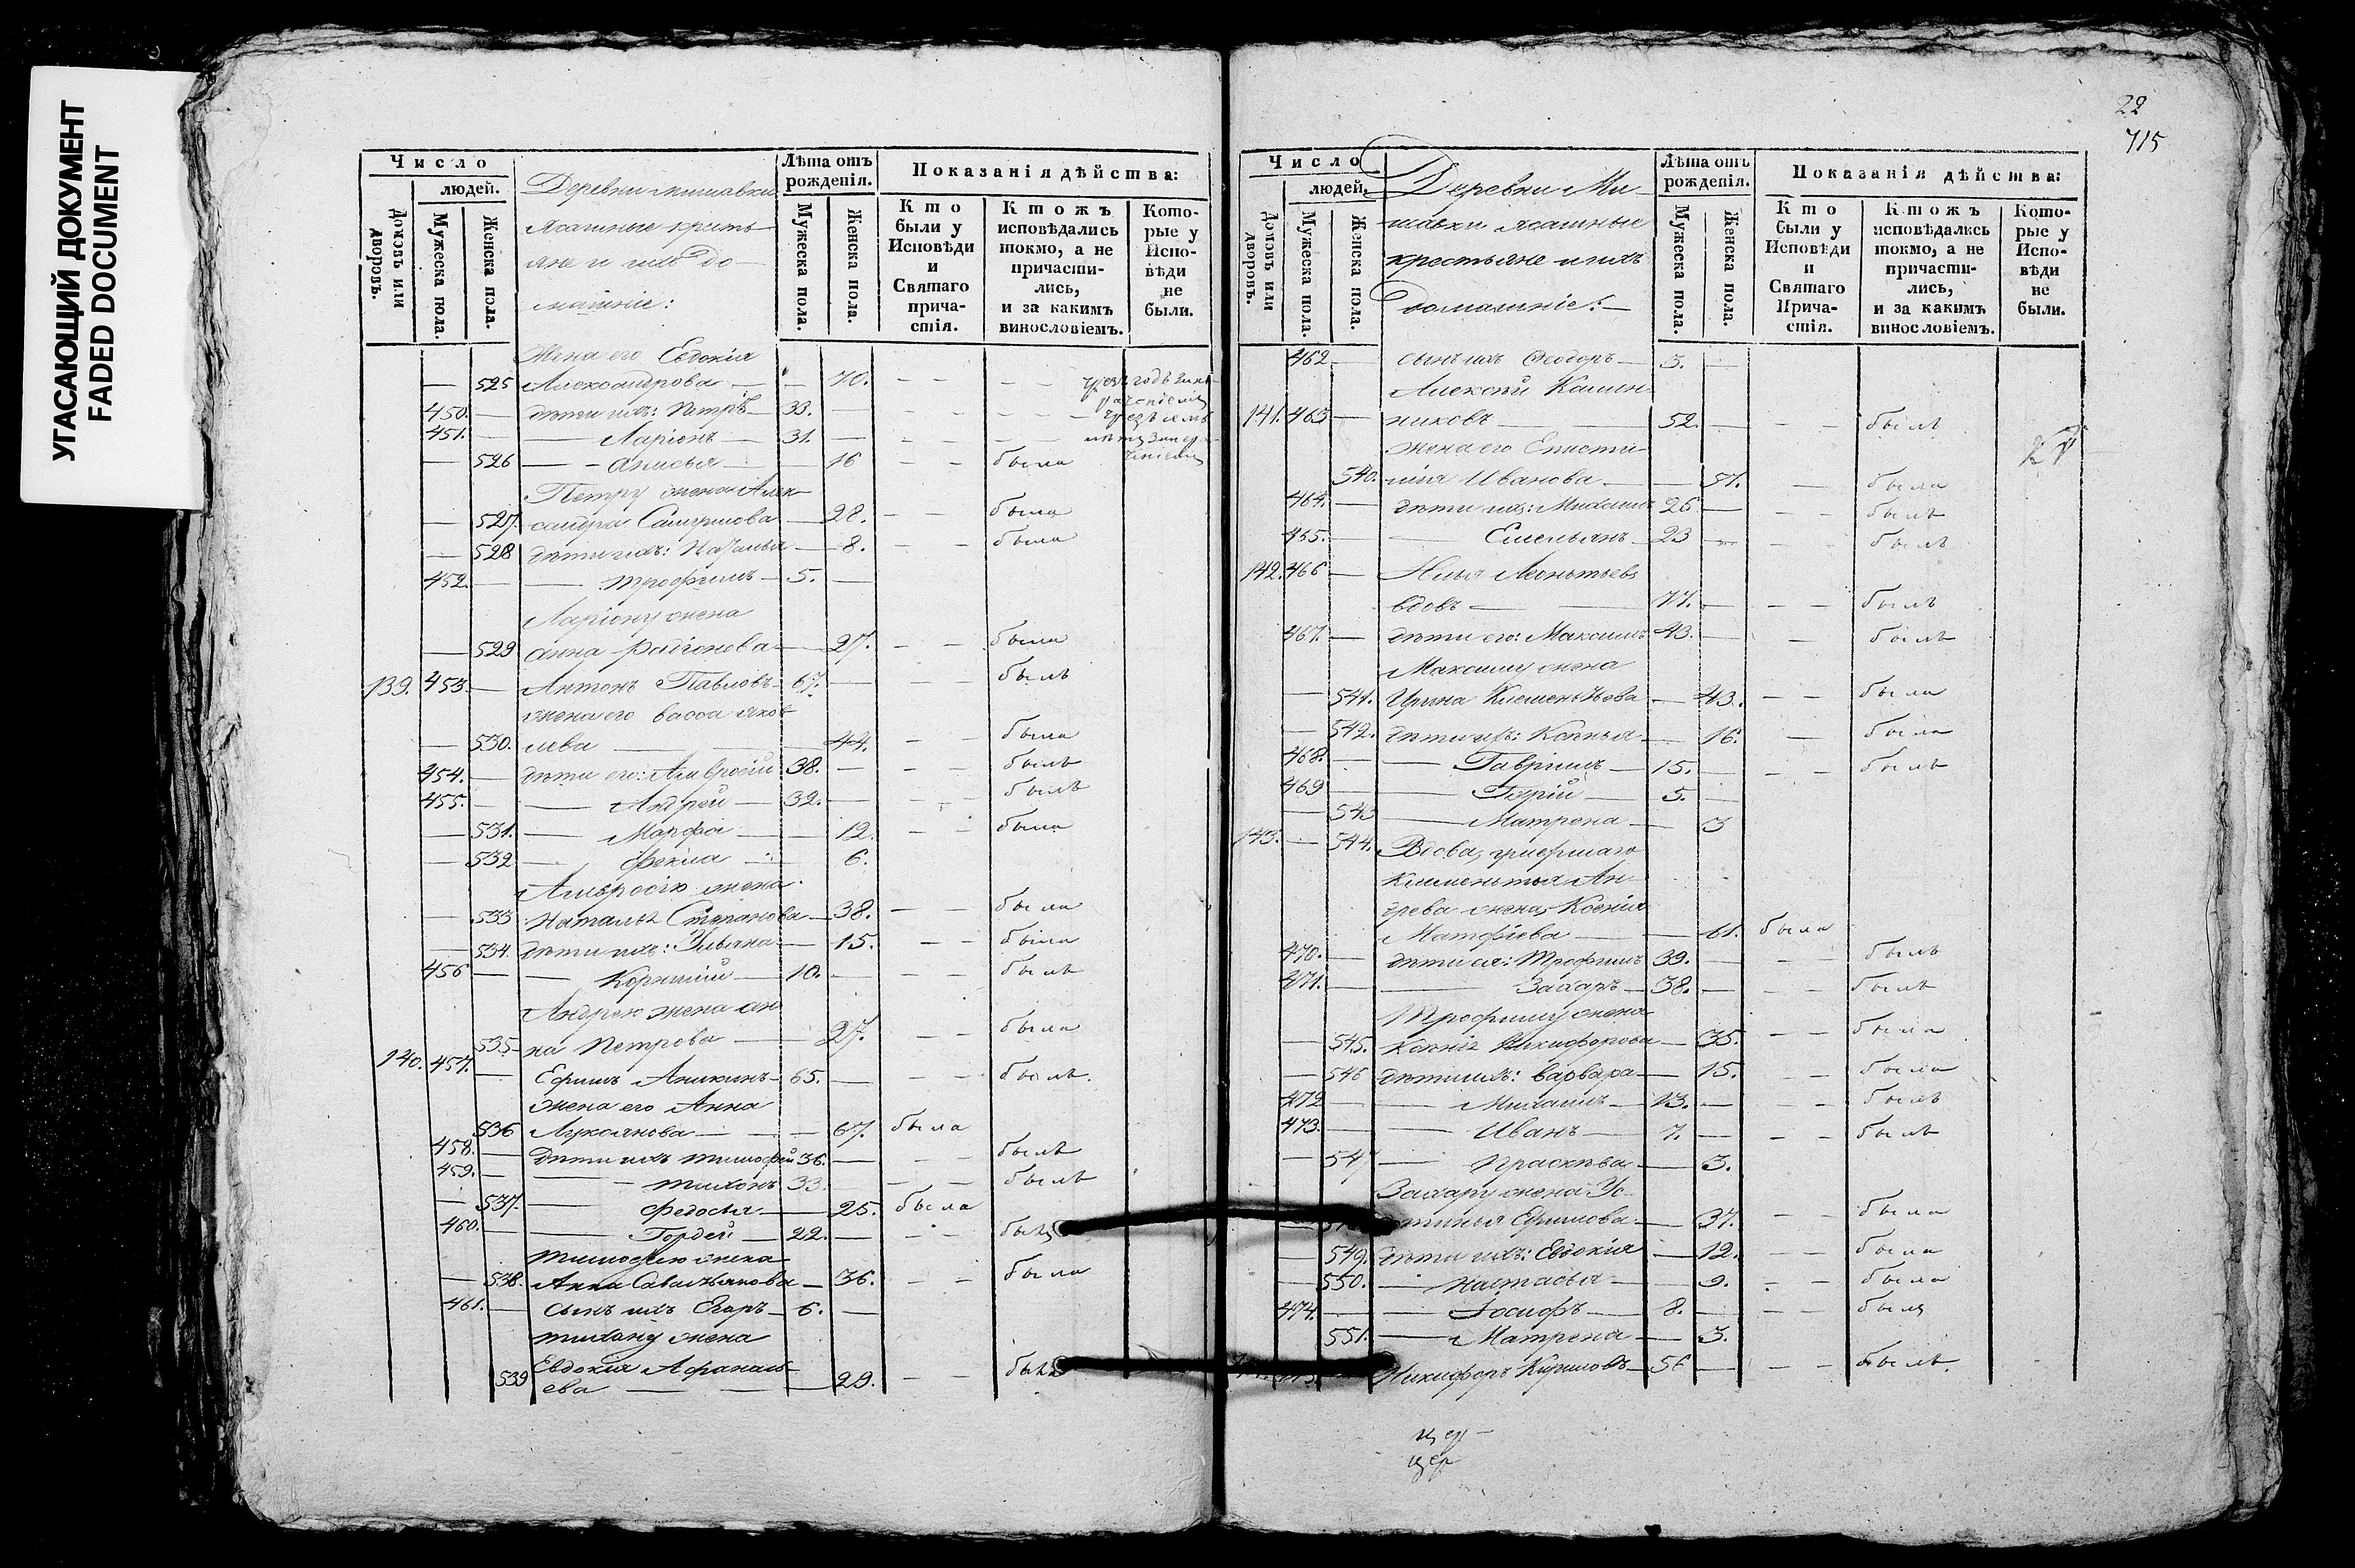 УГАСАЮЩИЙ ДОКУМЕНТ
FADED DOCUMENT
Число
людей.
Домовъ или дворовъ.
Мужеска пола.
Женска пола.
Деревни
Ясашные кресть-
яне и ихъ до-
машніе:
Лѣта отъ рожденія.
Мужеска пола.
Женска пола.
Показанія дѣйства:
Кто были у Исповѣди и Святаго причастія.
Ктожъ исповѣдались токмо, а не причастились, и за какимъ винословіемъ.
Которые у Исповѣди не были.
Жена его Евдокія
— 525 Александрова — — 70. — —
450. — дѣти ихъ: Петръ — 33. — — —
451. — — Ларіонъ — 31. — — —
— 526 — Анисья — — 16 — — была
Петру жена Алек-
— 527. сандра — 28. — — была
— 528 дѣти ихъ: Наталья — 8. — — была
452. — — Трофимъ — 5. —
Ларіону жена
— 529 Анна Радіонова — 27. — — была
139. 453 — Антонъ Павловъ — 67. — — — былъ
жена его Васса Яков-
— 530. лева — — 44. — — была
454. — дѣти его: Амвросій 38. — — — былъ
455. — — Андрей — 32. — — — былъ
— 531. — Марфа — — 12. — — была
— 532 — Фекла — 6.
Амвросію жена
— 533 Наталья Степанова — 38. — — была
— 534. дѣти ихъ: Ульяна — 15. — — была
456 — — Корнилій — 10. — — — былъ
Андрею жена Ан-
535. на Петрова — 27. — — была
140. 457. — Ефимъ Аникинъ — 65. — — — былъ.
жена его Анна
536 Лукоянова — — 67. была
458. — дѣти ихъ Тимофей 36. — — — былъ
459. — — Тихонъ 33. — — былъ
— 537. — Федосья — 25. была
460. — — Гордей — 22. — — —
Тимофею жена
— 538. Анна — 36. — — была
461. — сынъ ихъ Егоръ — 6. —
Тихону жена
539 Евдокія Афанась-
ева — — 29. — —
22
715
Число
людей.
Домовъ или дворовъ.
Мужеска пола.
Женска пола.
Деревни Ми-
шавки ясашные
крестьяне и ихъ
домашніе: —
Лѣта отъ рожденія.
Мужеска пола.
Женска пола.
Показанія дѣйства:
Кто были у Исповѣди и Святаго Причастія.
Ктожъ исповѣдались токмо, а не причастились, и за какимъ винословіемъ.
Которые у Исповѣди не были.
462 — сынъ ихъ Феодоръ — 3. —
Алексѣй Калин-
141. 463 — никовъ — 52. — — — былъ
жена его Еписти-
540. мія Иванова — — 51. — была
464. — дѣти ихъ: Михаилъ 26 — — — былъ
465. — — Емельянъ 23 — — — былъ
142. 466 — Илья Леонтьевъ
вдовъ — — 77. — — — былъ
467. — дѣти его: Максимъ 43. — — былъ
Максиму жена
— 541. Ирина Клементьева — 43. — — была
— 542. дѣти ихъ: Ксенья — 16. — была
468. — — Гавріилъ — 15. — — — былъ
469 — — Гурій — 5. —
— 543 — Матрена — 3
143. — 544. Вдова, умершаго
Клементья Ан-
дреева жена, Ксенія
Матфіева — — 61. была
470. — дѣти ея: Трофимъ 39. — — — былъ
471. — — Захаръ — 38. — — — былъ
Трофиму жена
— 545. Ксенія Никифорова — 35. — — была
— 546 дѣти ихъ: Варвара — 15. — — была
472 — — Михаилъ — 13. — — — былъ
473. — — Иванъ — 7. — — — былъ
— 547 — Прасковья — 3.
Захару жена Ус-
тинья Ефимова — 37. — — была
— 549. дѣти ихъ: Евдокія — 12. — — была
— 550. — Настасья — 9. — — была
474. — — Іосифъ — 8. — — — былъ
551. — Матрена — 3.
Никифоръ Кириловъ — 56 — — — былъ.